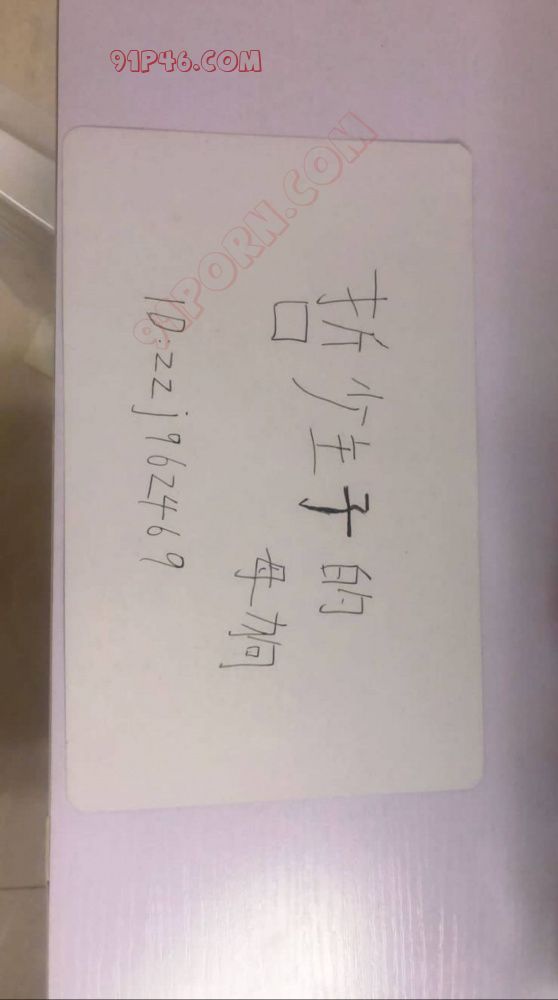 91P46.COM
91PORN.COM
哲少主子的
母狗
ID:zzj962469